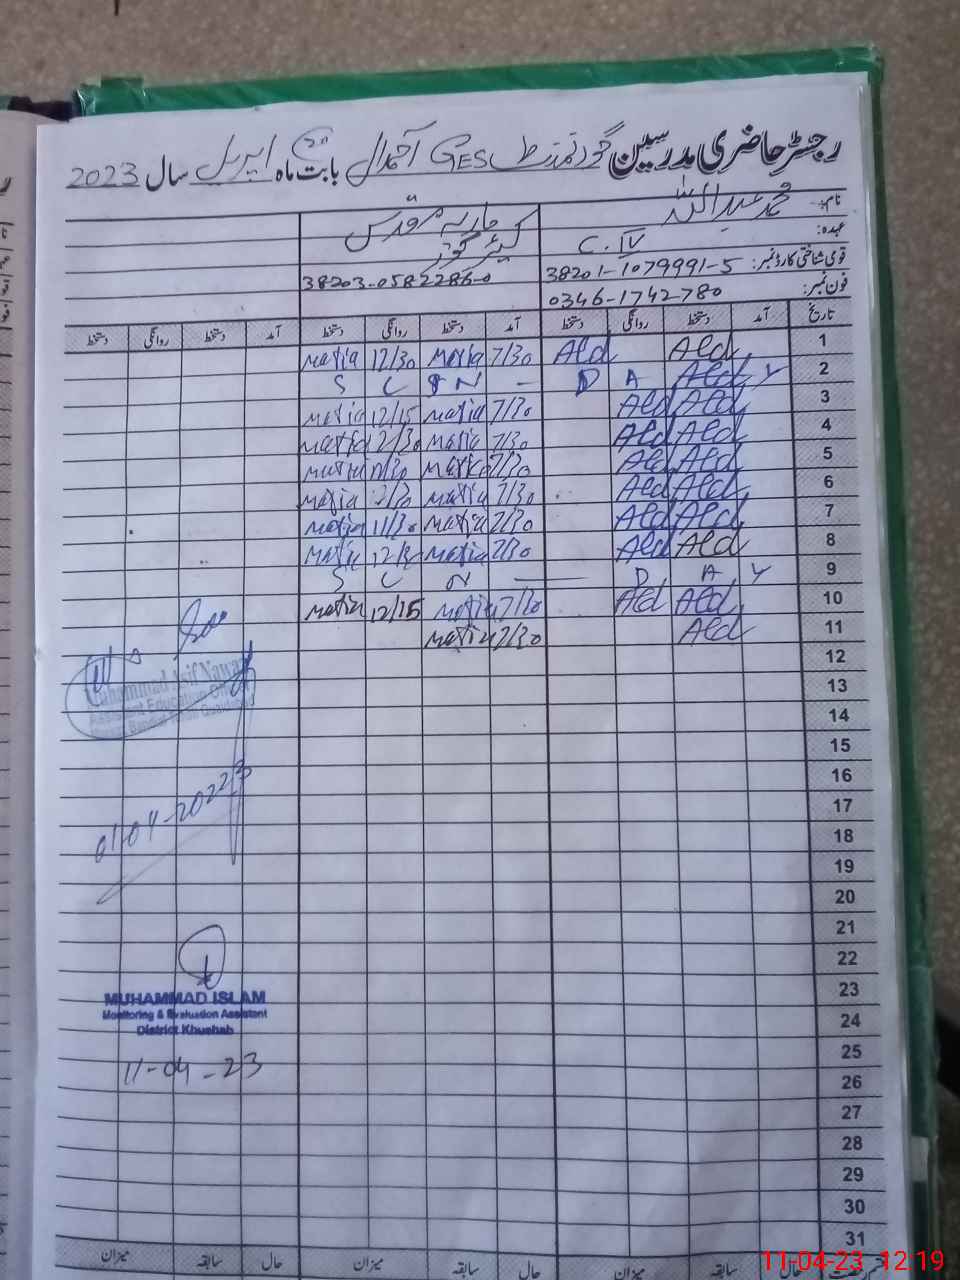 رجسٹر حاضری مدرسین گورنمنٹ GES احمدال بابت ماه اپریل سال 2023
نام: محمد عبداللہ ماریہ مقدس
عہدہ: C.IV کیئر گور
قومی شناختی کارڈ نمبر: 38201-1079991-5 38203-0582286-0
فون نمبر: 0346-1742780
تاریخ آمد دستخط روانگی دستخط آمد دستخط روانگی دستخط آمد دستخط روانگی دستخط
1 Ald Ald 7/30 Maria 12/30 Maria
2 S U N - D A Y
3 Ald Ald 7/30 Maria 12/15 Maria
4 Ald Ald 7/30 Maria 12/30 Maria
5 Ald Ald 7/30 Maria Maria
6 Ald Ald 7/30 Maria 12/30 Maria
7 Ald Ald 7/30 Maria 11/30 Maria
8 Ald Ald 7/30 Maria Maria
9 S U N - D A Y
10 Ald Ald 7/30 Maria 12/15 Maria
11 Ald 7/30 Maria
12
13
14
15
16
17
18
19
20
21
22
23
24
25
26
27
28
29
30
31
Muhammad Asif Nawaz
Assistant Education Officer
01-04-2023
MUHAMMAD ISLAM
Monitoring & Evaluation Assistant
District Khushab
11-04-23
حال سابقہ میزان حال سابقہ میزان حال سابقہ میزان
11-04-23 12:19